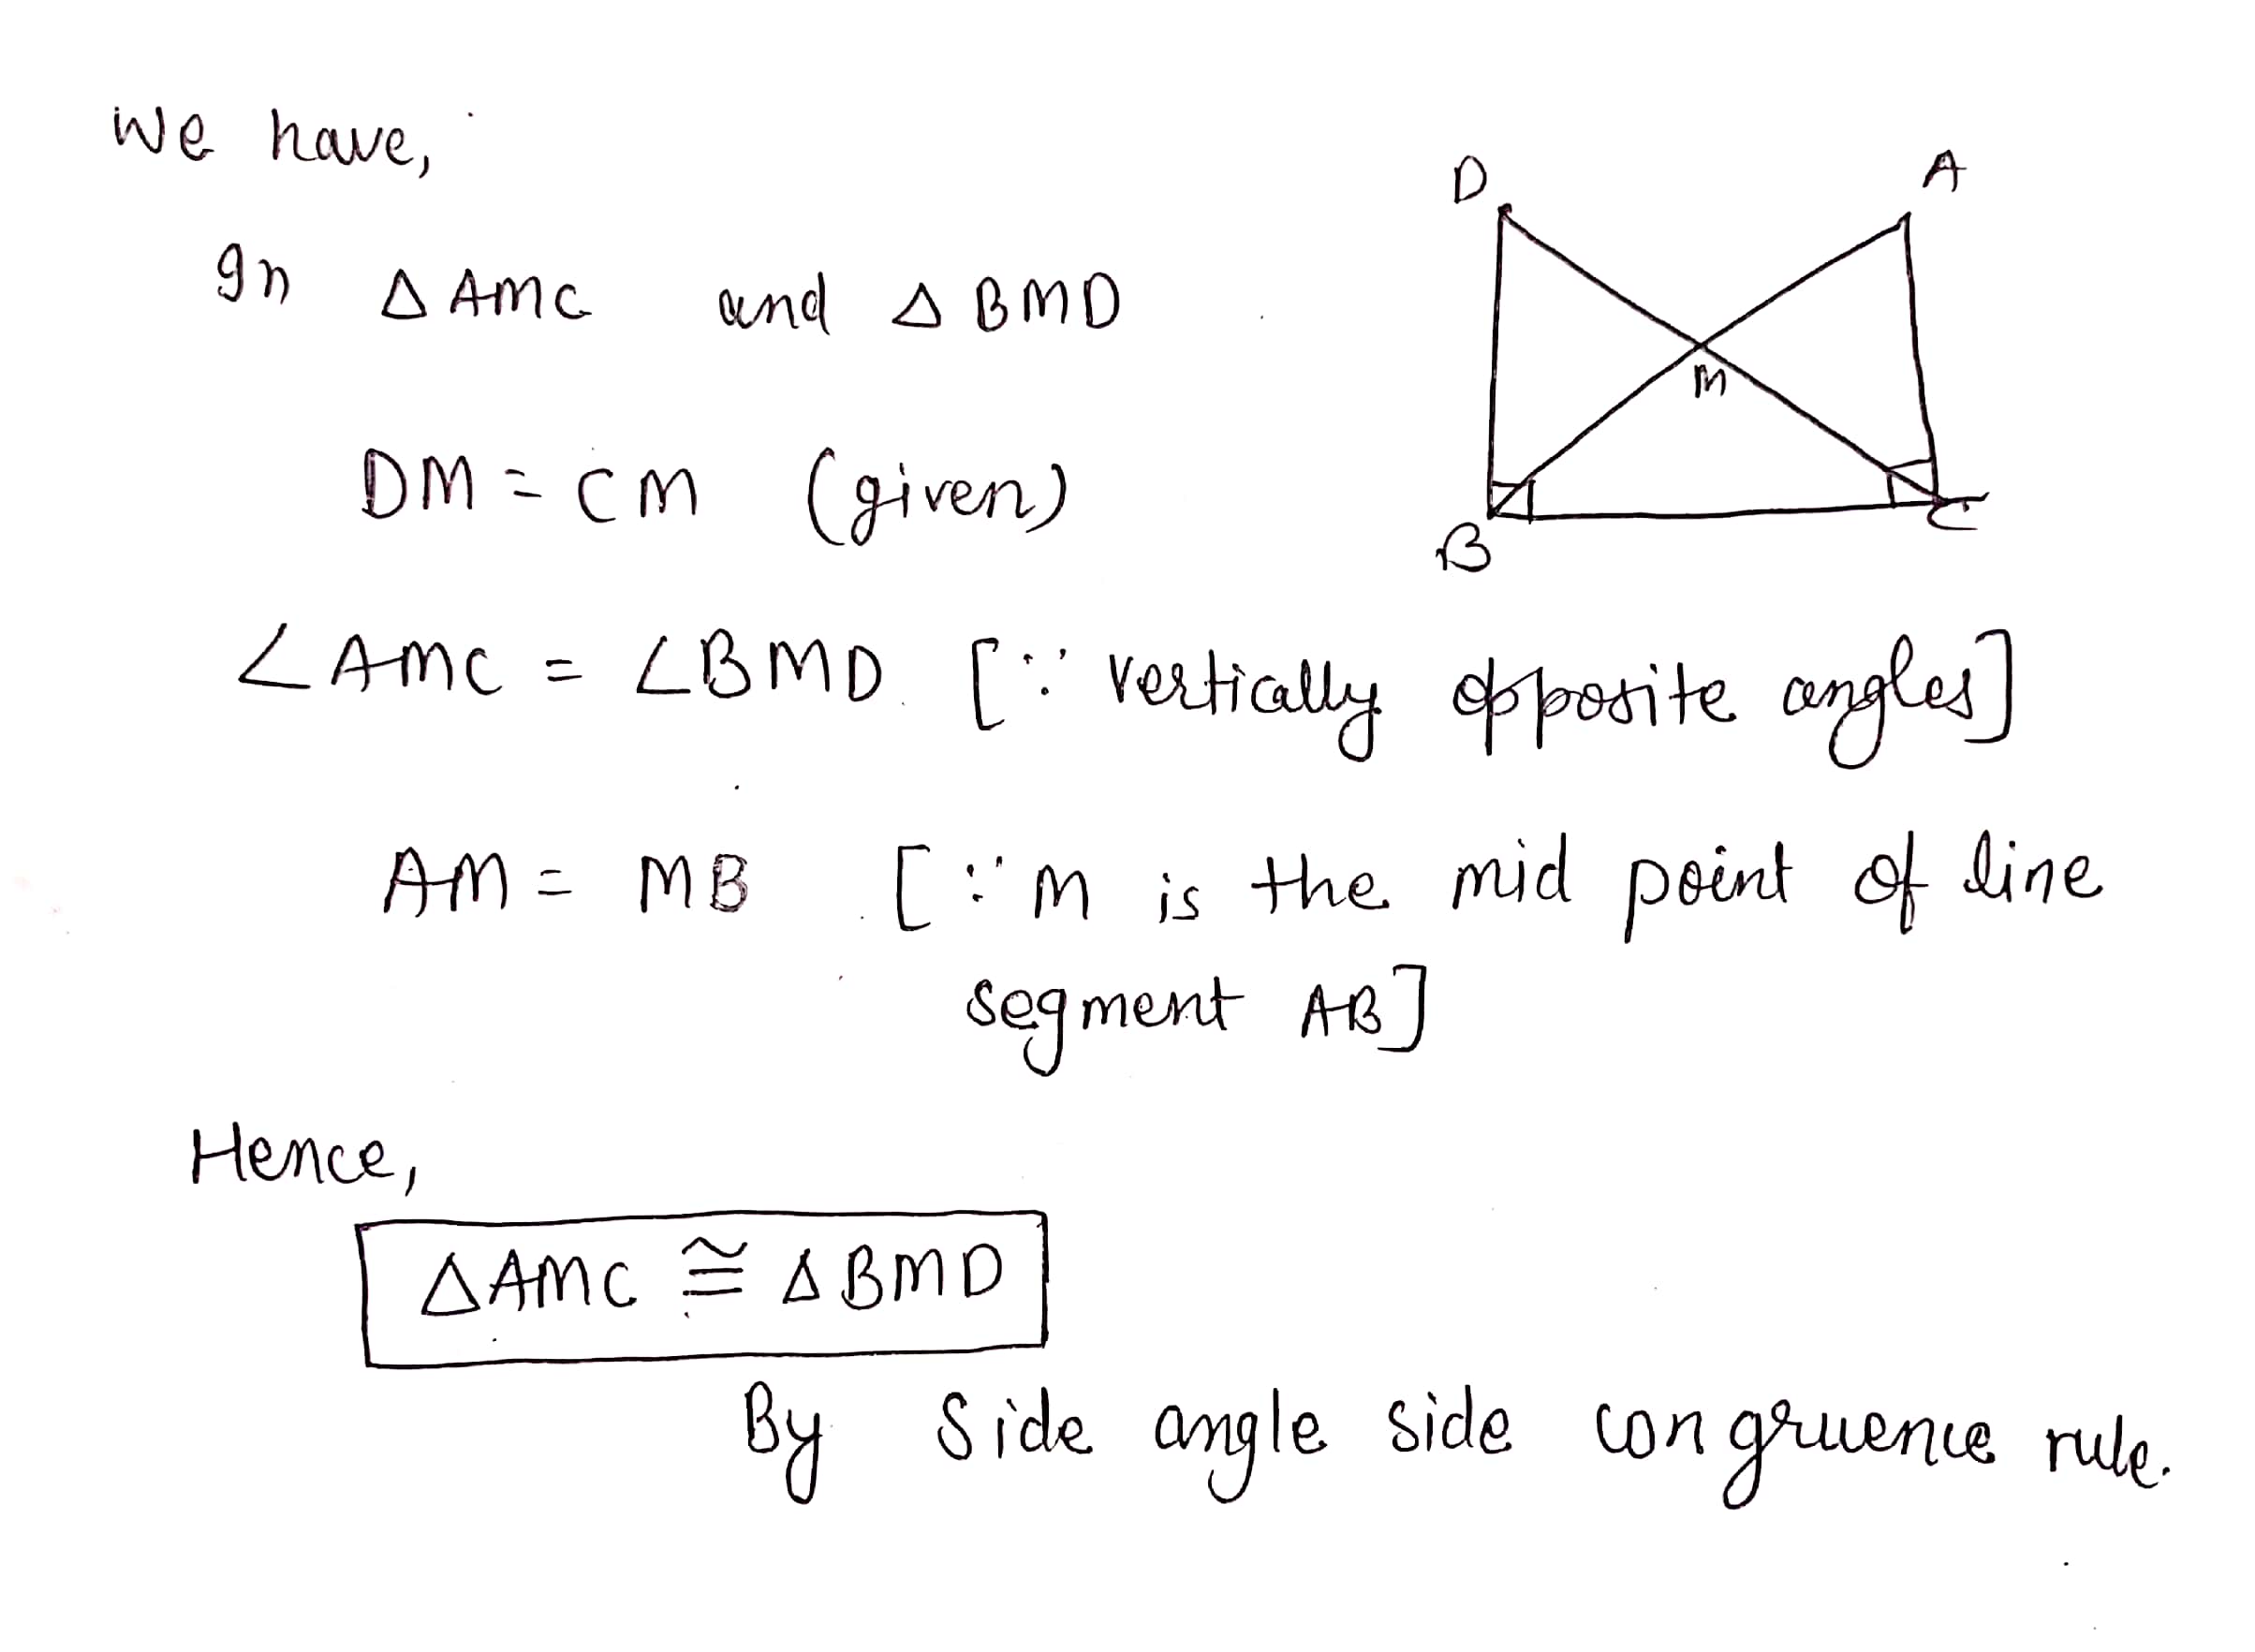 We have,
D
A
In △ AMC and △ BMD
M
DM = CM (given)
B
C
∠AMC = ∠BMD [∵ vertically opposite angles]
AM = MB [∵ M is the mid point of line
segment AB]
Hence,
△AMC ≅ △BMD
By Side angle side congruence rule.